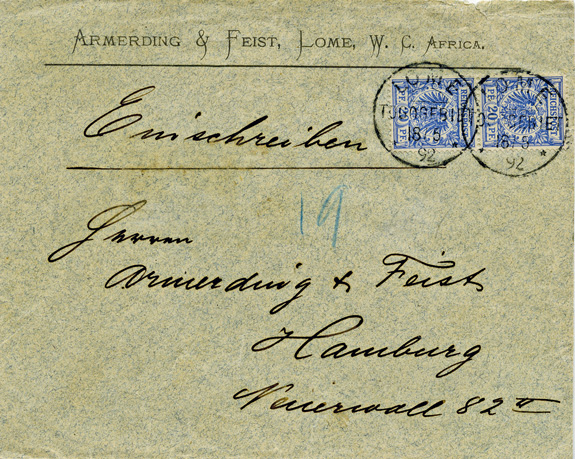 ARMERDING & FEIST, LOME, W. C. AFRICA.
LOME
TOGOGEBIET
18/5
92
REICHSPOST
PF. 20 PF.
LOME
TOGOGEBIET
18/5
92
REICHSPOST
PF. 20 PF.
Einschreiben
19
Herren
Armerding & Feist
Hamburg
Neuerwall 82 II